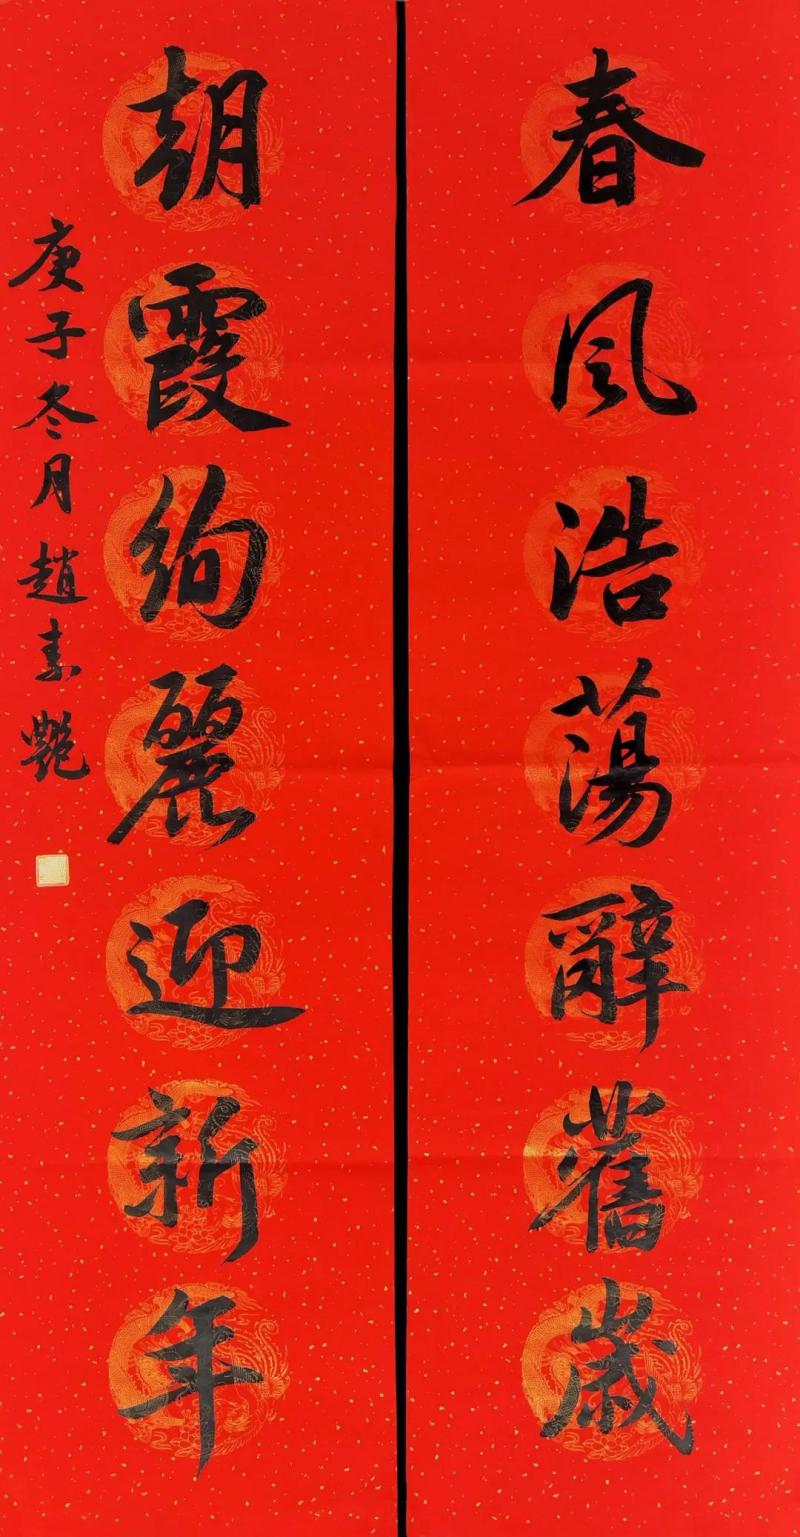 春風浩蕩辭舊歲
朝霞絢麗迎新年
庚子冬月趙素艷